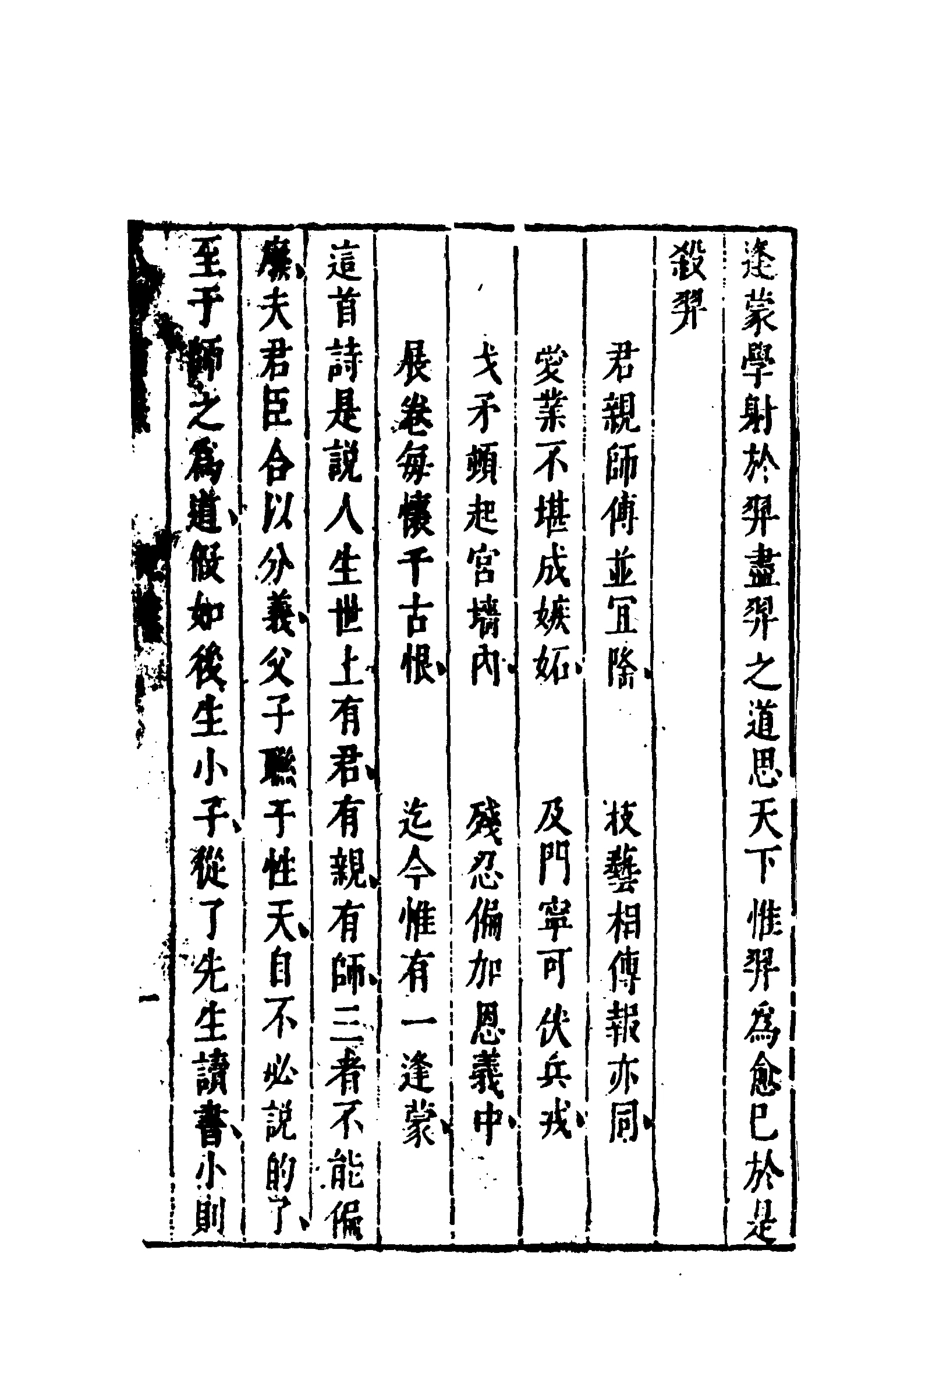 逢蒙學射於羿盡羿之道思天下惟羿爲愈已於是
殺羿
君親師傅並冝隆、 技藝相傳報亦同、
受業不堪成嫉妬、 及門寧可伏兵戎、
戈矛頓起宮墻內、 殘忍偏加恩義中、
展卷每懷千古恨、 迄今惟有一逢蒙、
這首詩是説人生世上有君、有親、有師、三者不能偏
廢、夫君臣合以分義、父子聯于性天、自不必説的了、
至于師之爲道、假如後生小子、從了先生讀書、小則
一